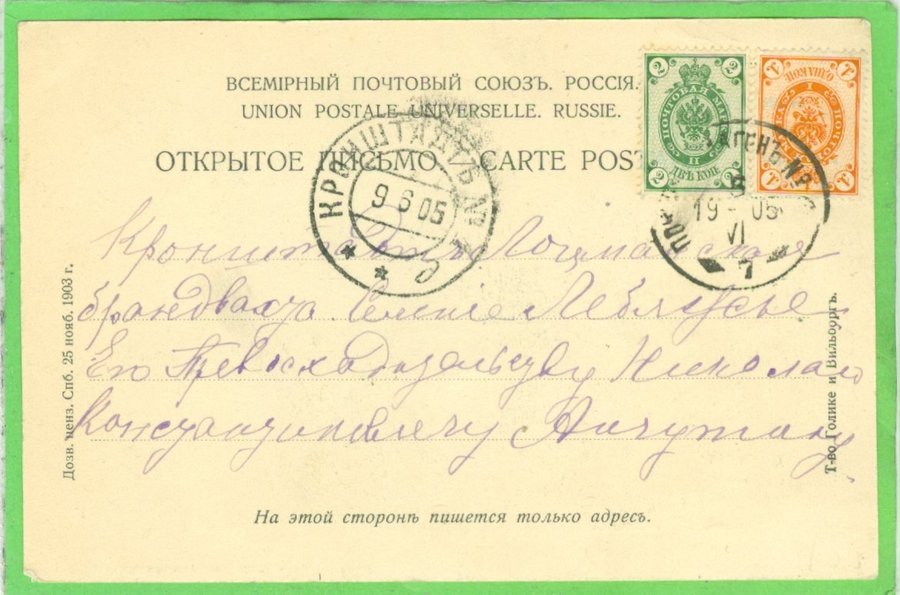 ВСЕМІРНЫЙ ПОЧТОВЫЙ СОЮЗЪ. РОССІЯ.
UNION POSTALE UNIVERSELLE. RUSSIE.
ОТКРЫТОЕ ПИСЬМО. CARTE POST
2 2
ПОЧТОВАЯ МАРКА
II
ДВѢ КОП.
2 2
1 1
I
1 1
КРОНШТАДТЪ №
9 6 05
АГЕНЪ №
19 05
VI
7
Кронштадтъ Лоцманское
брандвахта Селеніе Лебяжье
Его Превосходительству Николаю
Константиновичу
На этой сторонѣ пишется только адресъ.
Дозв. ценз. Спб. 25 нояб. 1903 г.
Т-во Голике и Вильборгъ.